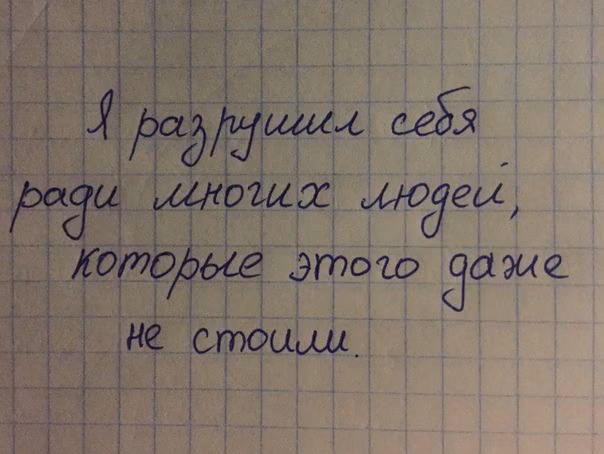 Я разрушил себя
ради многих людей,
которые этого даже
не стоили.